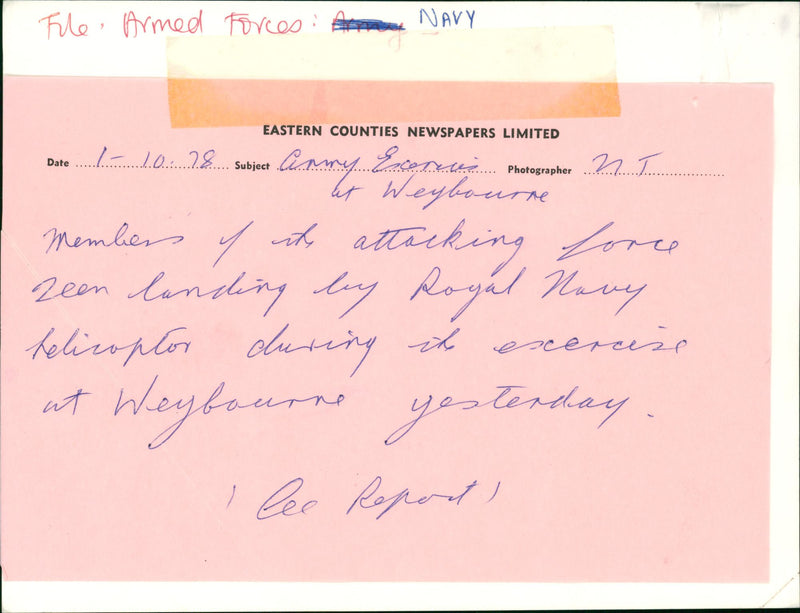 File. Armed Forces: Army NAVY
EASTERN COUNTIES NEWSPAPERS LIMITED
Date 1-10.78 Subject Army Exercis Photographer NT
at Weybourne
Members of the attacking force
seen landing by Royal Navy
helicoptor during the exercise
at Weybourne yesterday.
(See Report)